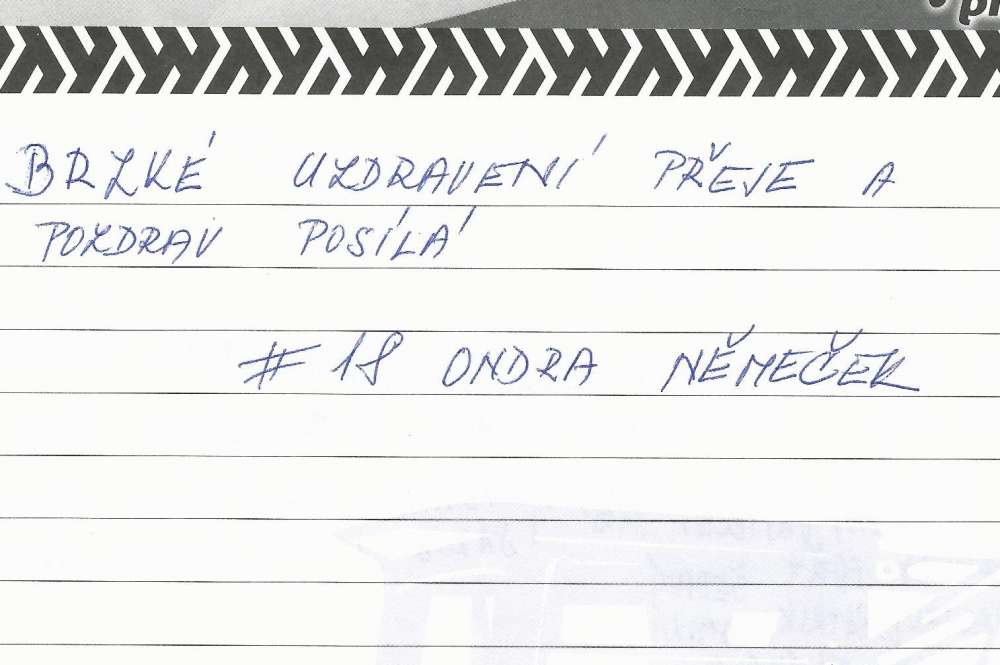 BRZKÉ UZDRAVENÍ PŘEJE A
POZDRAV POSÍLÁ
#18 ONDRA NĚMEČEK